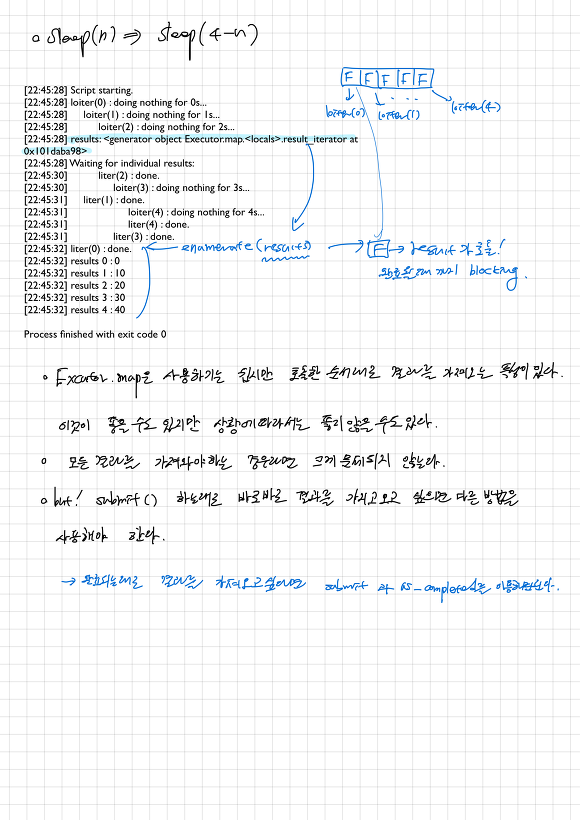 o sleep(n) ⇒ sleep(4-n)
F F F F F
loiter(0) loiter(1) ... loiter(4)
[22:45:28] Script starting.
[22:45:28] loiter(0) : doing nothing for 0s...
[22:45:28] loiter(1) : doing nothing for 1s...
[22:45:28] loiter(2) : doing nothing for 2s...
[22:45:28] results: <generator object Executor.map.<locals>.result_iterator at
0x101daba98>
[22:45:28] Waiting for individual results:
[22:45:30] liter(2) : done.
[22:45:30] loiter(3) : doing nothing for 3s...
[22:45:31] liter(1) : done.
[22:45:31] loiter(4) : doing nothing for 4s...
[22:45:31] liter(4) : done.
[22:45:31] liter(3) : done.
[22:45:32] liter(0) : done. ← enumerate(results) → F → result 가 호출!
완료될때 까지 blocking.
[22:45:32] results 0 : 0
[22:45:32] results 1 : 10
[22:45:32] results 2 : 20
[22:45:32] results 3 : 30
[22:45:32] results 4 : 40
Process finished with exit code 0
o Executor.map은 사용하기는 쉽지만 호출한 순서대로 결과를 가져오는 특성이 있다.
이것이 좋을 수도 있지만 상황에 따라서는 좋지 않을 수도 있다.
o 모든 결과를 가져와야하는 경우라면 크게 문제되지 않는다.
o but! submit() 하는대로 바로바로 결과를 가지고오고 싶으면 다른 방법을
사용해야 한다.
→ 완료되는대로 결과를 가져오고싶다면 submit 과 as_completed를